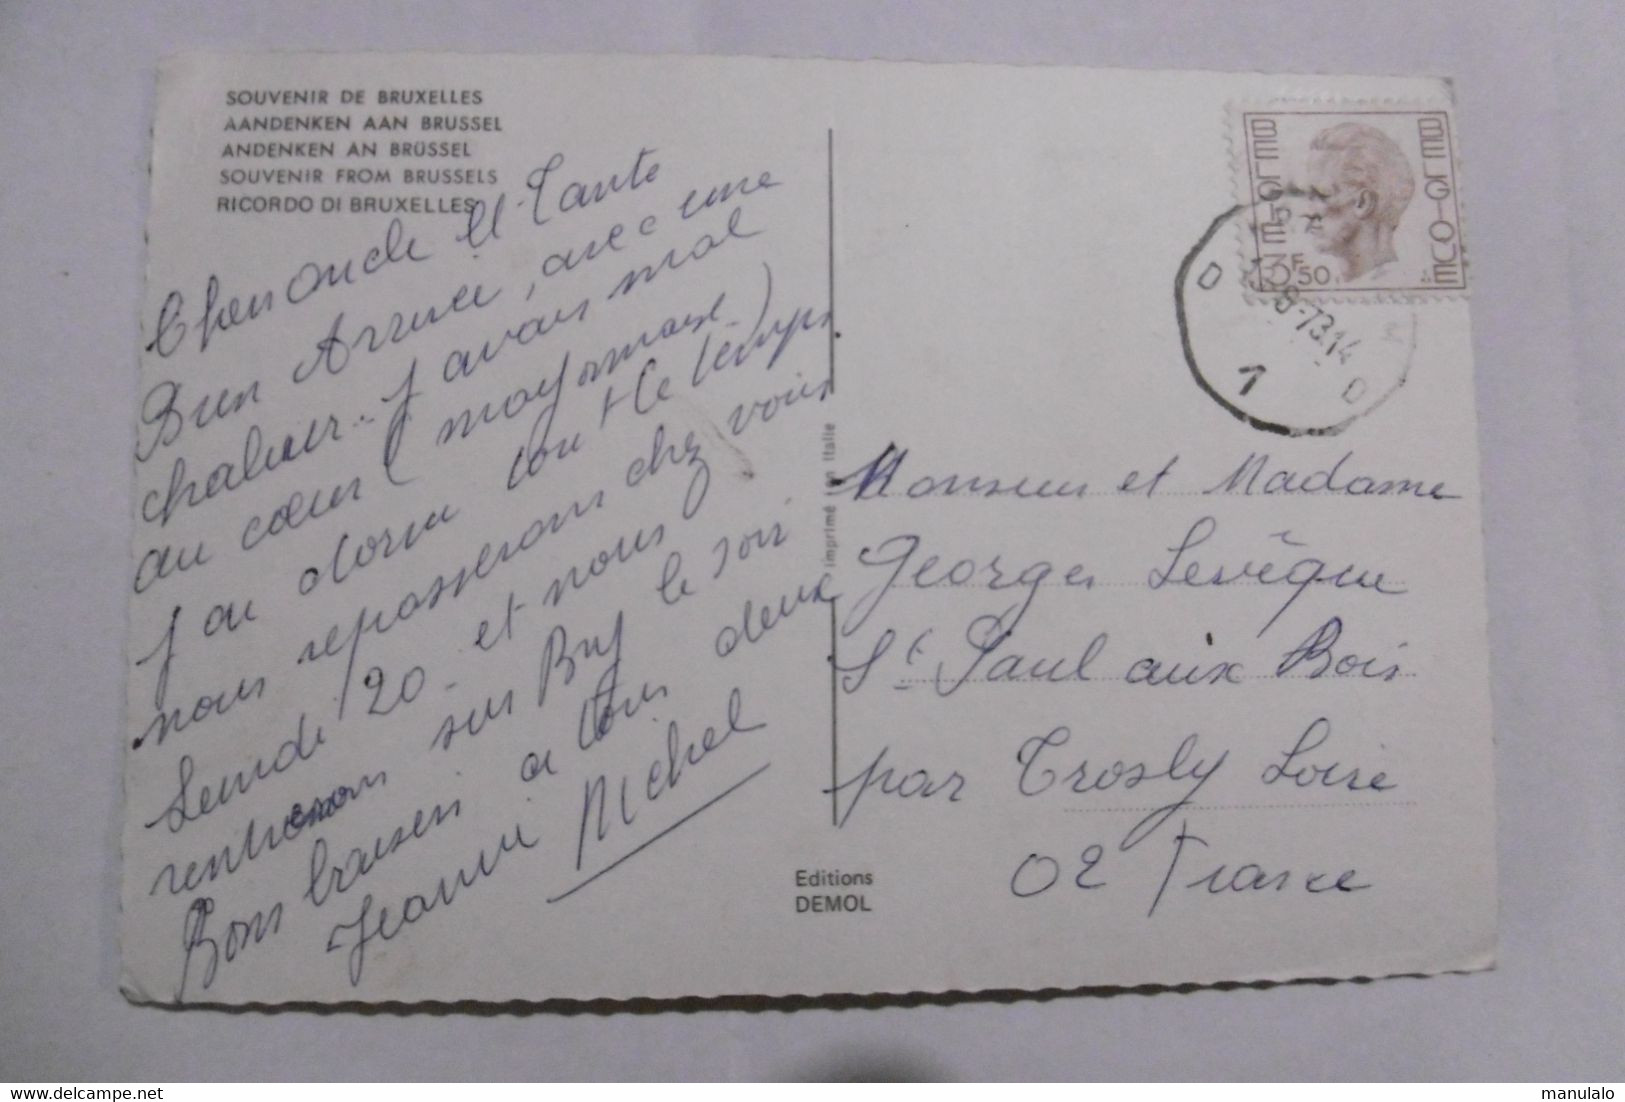 SOUVENIR DE BRUXELLES
AANDENKEN AAN BRUSSEL
ANDENKEN AN BRÜSSEL
SOUVENIR FROM BRUSSELS
RICORDO DI BRUXELLES
Cher oncle et Tante
Bien Arrivée, avec une
chaleur.. J avais mal
au cœur (mayonnaise)
J ai dormi tout le temps
nous repasserons chez vous
Lundi 20 et nous
rentrerons sur le soir
Bons baisers a tous deux
Jeannie Michel
imprimé en Italie
Editions
DEMOL
BELGIE BELGIQUE
3F50
8-73.14
1
Monsieur et Madame
Georges Levêque
St Paul aux Bois
par Trosly Loire
02 France
manulalo
delcampe.net